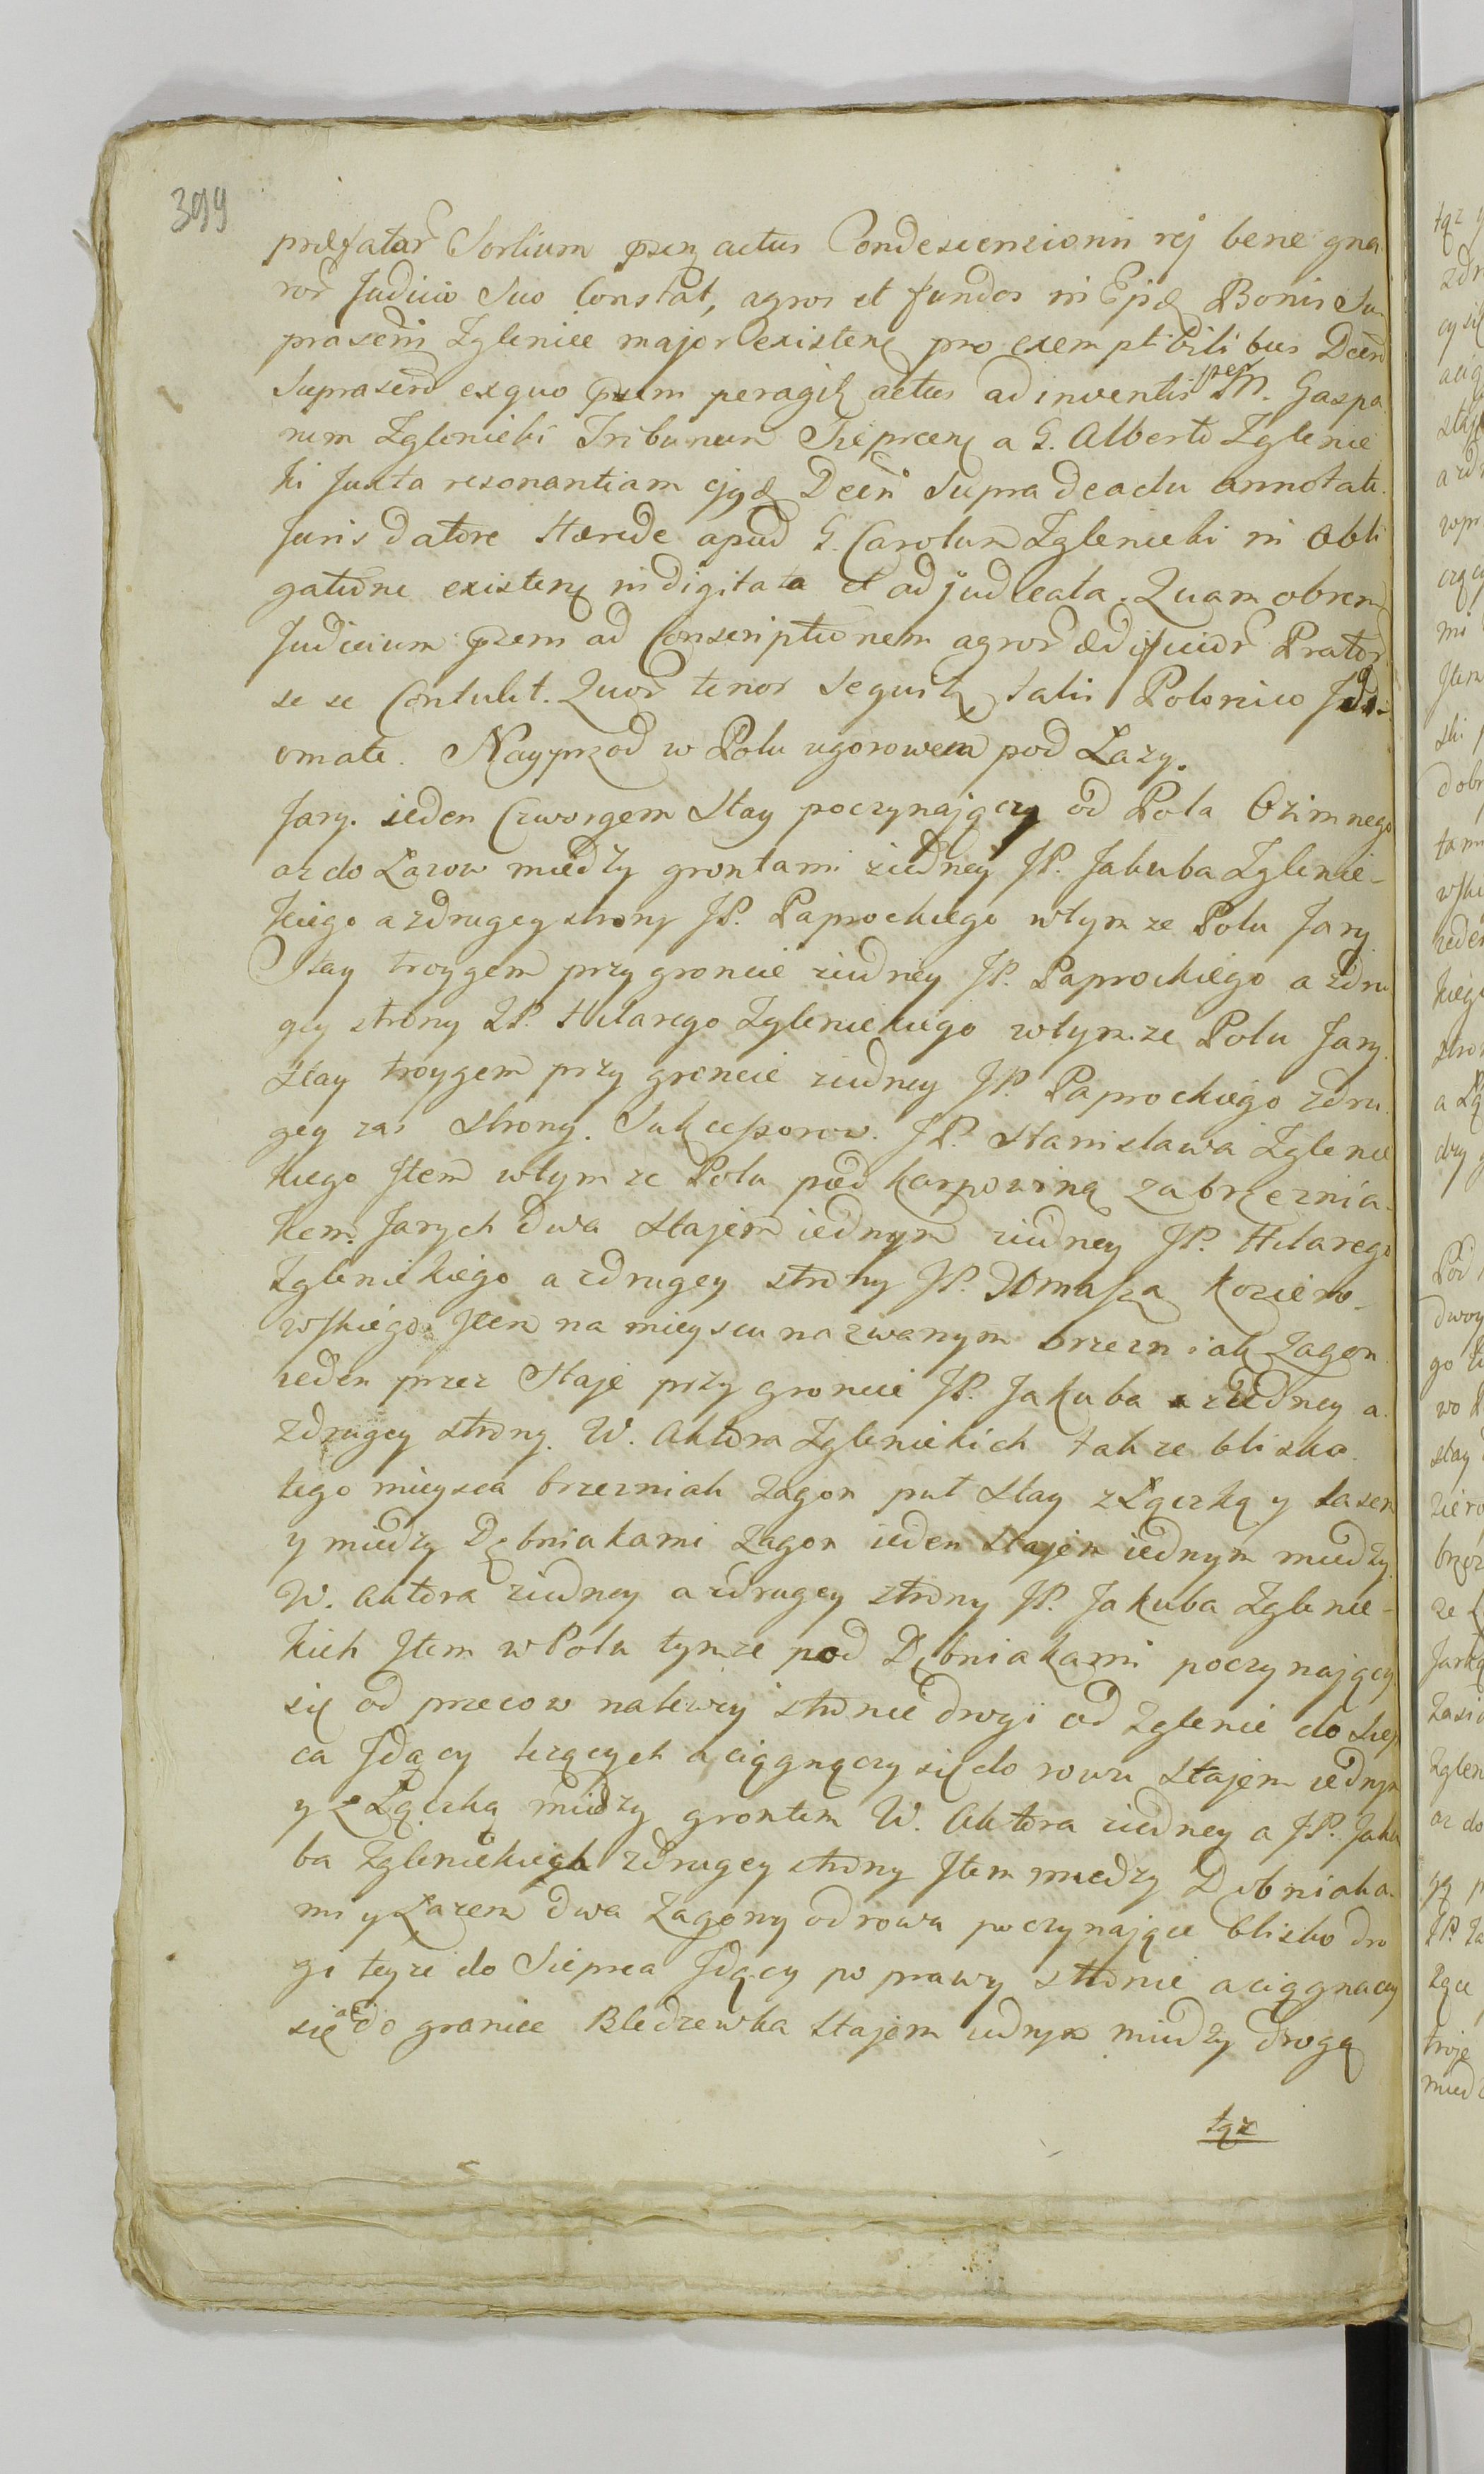 399
præfator Sortium pńsq actus Condescensionis rej bene gna
ror Judicio Suo Constat, agros et fundos in Ejsdē Bonis Su-
prascrij Zglenice major existenē pro exemptibilibus Decrō
Suprascrō exquo pńsm peragitę actus adinventis per M. Gaspa
rem Zglenicki Tribunum Sieprcenę a G. Alberto Zglenic
ki Juxta resonantiam ejqdē Decri Supra deactu annotati
Juris datore Hærede apud G. Carolum Zglenicki in Obli
gatione existenę indigitata et adjudicata. Quam obrem
Judicium pńsem ad Conscriptionem agror ædificior Prator
se se Contulit. Quor tenor Sequitę talis Polonico Jdi-
omate. Nayprzod w Polu ugorowem pod Łazy.
Jary. ieden Czworgem Stay poczynający od Pola Ozimnego
az do Łazow między grontami ziedney JP. Jakuba Zglenic-
kiego a zdrugey strony JP. Paprockiego wtym ze Polu Jary
Stay troygem przy groncie ziedney JP. Paprockiego a zdru
giey strony JP. Hilarego Zglenickiego wtym ze Polu Jary.
Stay troygem przy groncie ziedney JP. Paprockiego zdru
giey zas Strony. Sukcessorow. JP. Stanisława Zglenic
kiego Jtem wtym ze Polu pod karpowiną za brzeznia-
kem. Jarych dwa Stajem iednym ziedney JP. Hilarego
Zglenickiego a zdrugey strony JP. Tomasza Koziero-
wskiego Jtem na mieyscu nazwanym brzezniak Zagon
ieden przez Staje przy groncie JP. Jakuba a ziedney a
zdrugey strony W. Aktora Zglenickich takze blisko
tego mieysca brzezniak zagon puł Stay z Łączką y Lasem
y między Dębniakami zagon ieden Stajem iednym między
W. Aktora ziedney a zdrugey strony JP. Jakuba Zglenic-
kich Jtem w Polu tymze pod Dębniakami poczynający
się od przecow nalewey stronie drogi od Zglenic do Siep
ca Jdący lezących aciągnączy się do rowu Stajem iednym
y z Łączką między grontem W. Aktora ziedney a JP. Jaku
ba Zglenickiego zdrugey strony Jtem między Dębniaka
mi y Łazem dwa zagony odrowu poczynające blisko dro
gi teyze do Sieprca Jdący po prawy stronie aciągnący
się az do granice Bledzewka Stajem iednym między drogą
tąz